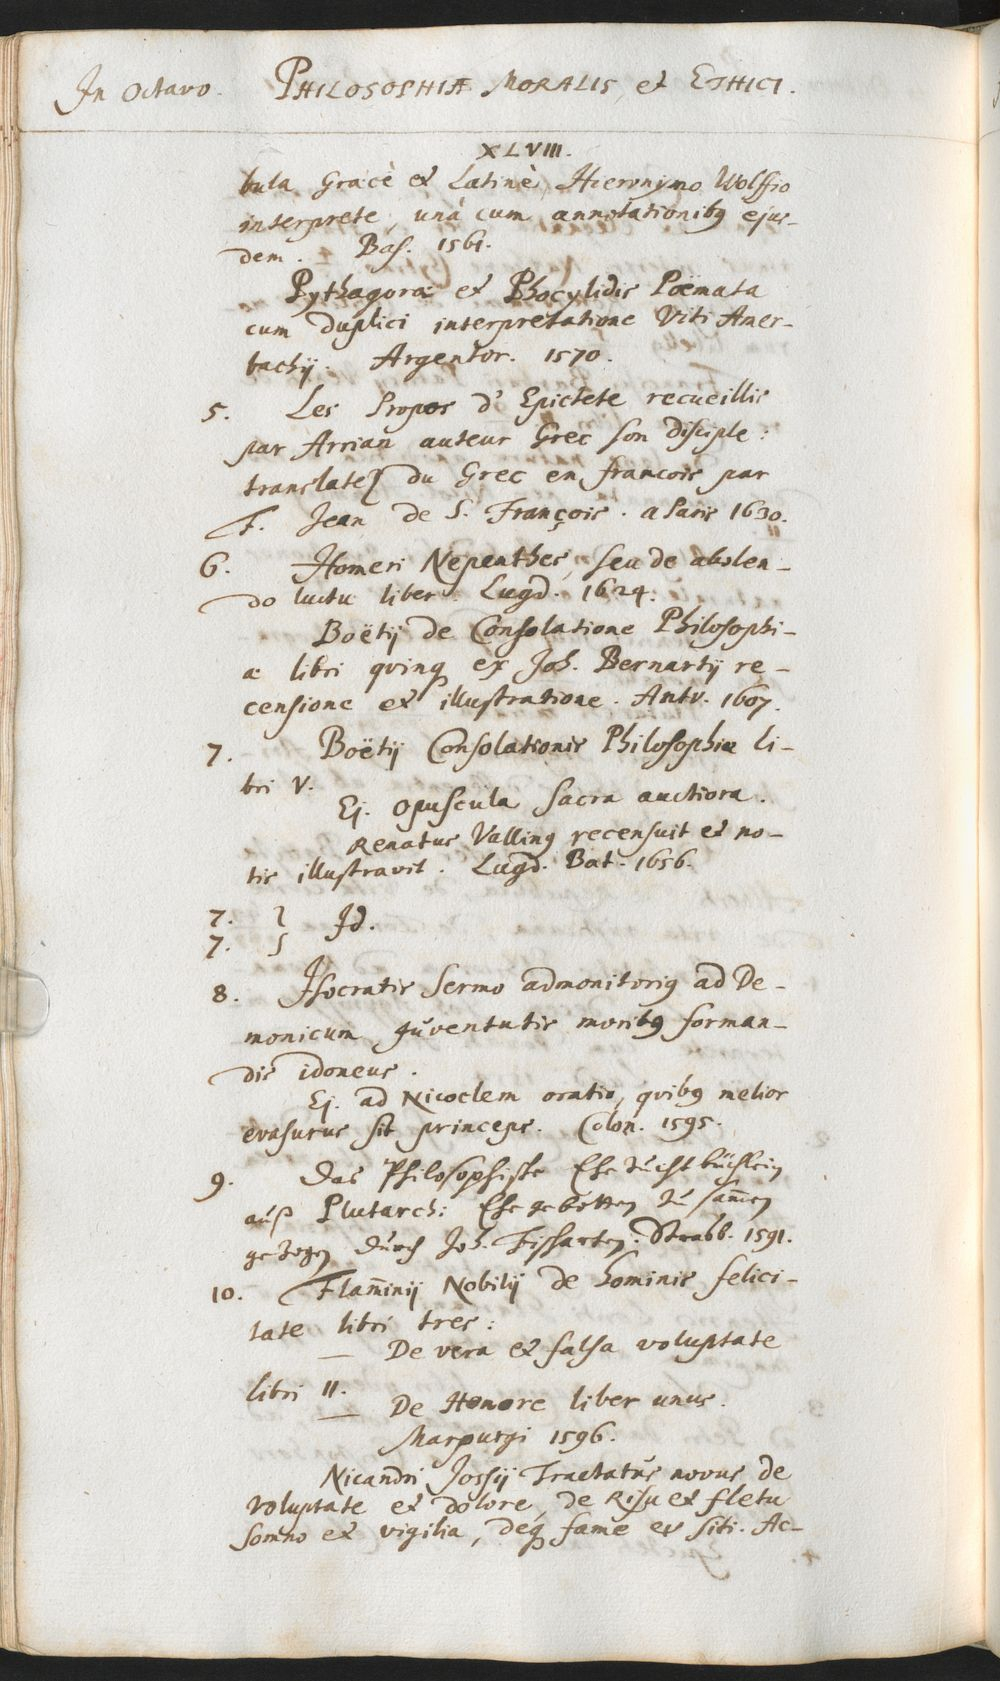 In Octavo. PHILOSOPHIÆ MORALIS, et ETHICI.
XLVIII.
bula Græcè et Latinè, Hieronymo Wolffio
interprete, unà cum annotationibꝰ ejus-
dem. Bas. 1561.
Pythagoræ et Phocylidis Poëmata
cum duplici interpretatione Viti Amer-
bachij. Argentor. 1570.
5. Les Propos d' Epictete recueillis
par Arrian auteur Grec son disciple:
translatez du Grec en francois par
F. Jean de S. François. a Paris 1630.
6. Homeri Nepenthes, seu de abolen-
do luctu liber. Lugd. 1624.
Boëtij de Consolatione Philosophi-
æ libri quinqꝫ ex Joh. Bernartij re-
censione et illustratione. Antv. 1607.
7. Boëtij Consolationis Philosophiæ li-
bri V.
Ej. Opuscula Sacra auctiora.
Renatus Vallinꝰ recensuit et no-
tis illustravit. Lugd. Bat. 1656.
7. } Id.
7.
8. Isocratis Sermo admonitoriꝰ ad De-
monicum, Juventutis moribꝰ forman-
dis idoneus.
Ej. ad Nicoclem oratio, quibꝰ melior
evasurus sit princeps. Colon. 1595.
9. Das Philosophische Ehezuchtbüchlein
auß Plutarchi Ehegebotten zusam̄en
gezogen durch Joh. Fischarten. Strasb. 1591.
10. Flam̄inij Nobilij de hominis felici-
tate libri tres:
— De vera et falsa voluptate
libri II.
— De Honore liber unus.
Marpurgi 1596.
Nicandri Jossij Tractatus novus de
voluptate et dolore, de Risu et fletu
somno et vigilia, deqꝫ fame et siti. Ac-